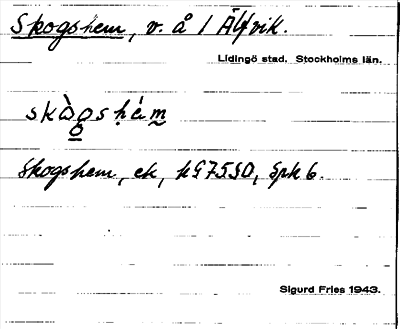 Skogshem, v. å / Älfvik.
Lidingö stad. Stockholms län.
Skogshem, ek, h G7550, Spk 6.
Sigurd Fries 1943.